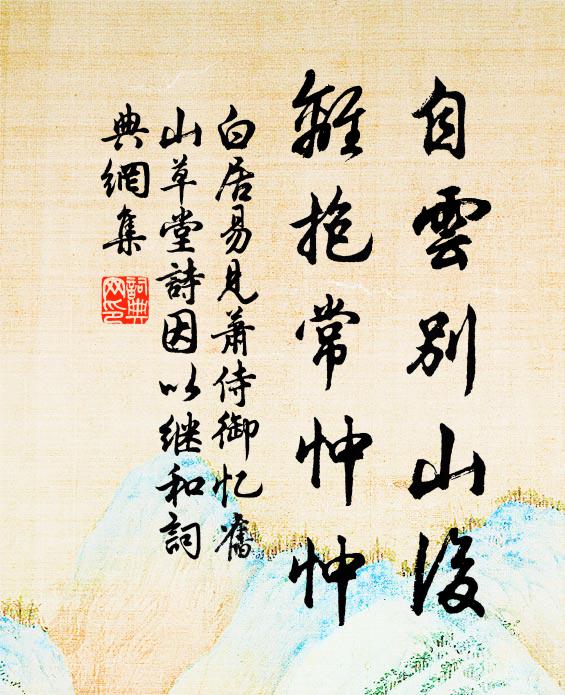 自雲別山後
離抱常忡忡
白居易見蕭侍御忆舊
山草堂詩因以继和詞
典網集
詞典
网印